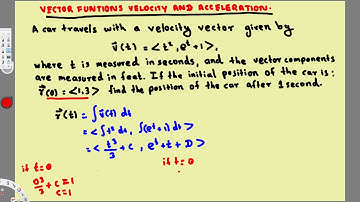 VECTOR FUNTIONS VELOCITY AND ACCELERATION.
A car travels with a velocity vector given by
v⃗(t) = <t², eᵗ+1>,
where t is measured in seconds, and the vector components
are measured in feet. If the initial position of the car is:
r⃗(0) = <1,3> find the position of the car after 1 second.
r⃗(t) = ∫ v⃗(t) dt
= <∫t² dt, ∫(eᵗ+1)dt>
= <t³/3 + C, eᵗ+t+D>
if t=0
0³/3 + C = 1
C = 1
if t=0